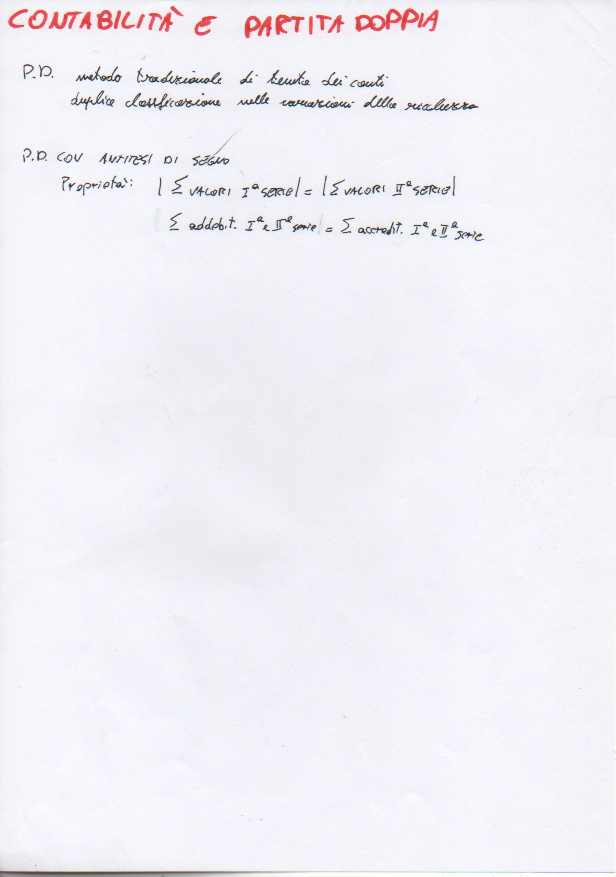 CONTABILITÀ E PARTITA DOPPIA
P.D. metodo tradizionale di tenuta dei conti
duplice classificazione nelle variazioni della ricchezza
P.D. CON ANTITESI DI SEGNO
Proprietà: |Σ VALORI Iª SERIE| = |Σ VALORI IIª SERIE|
Σ addebit. Iª e IIª serie = Σ accredit. Iª e IIª serie